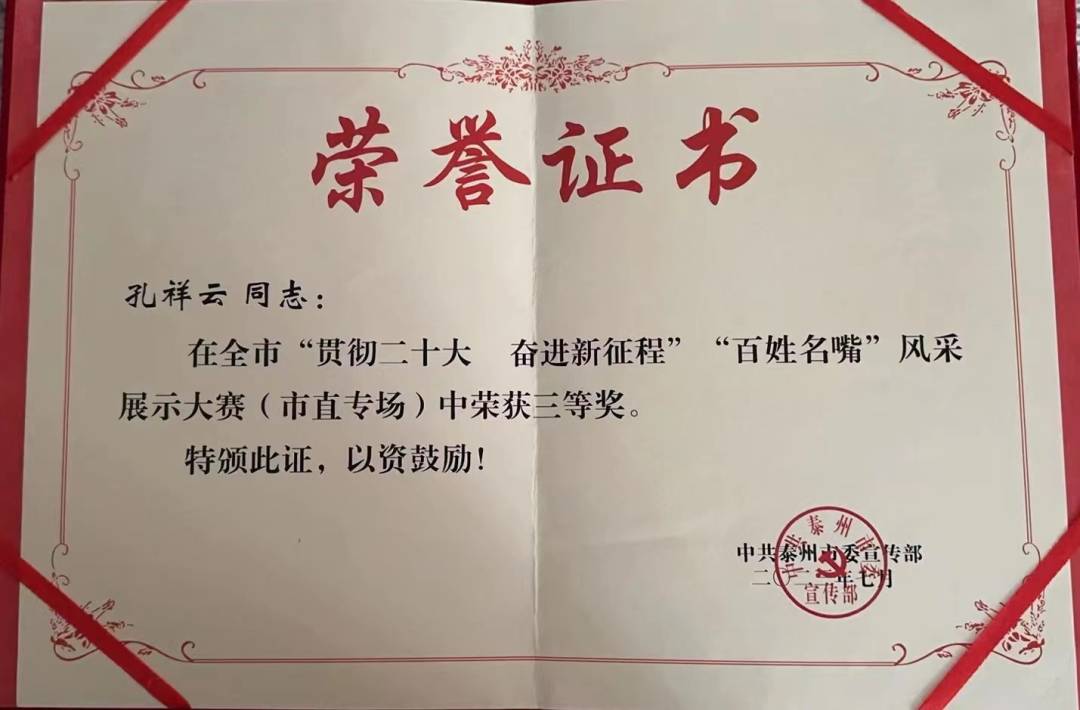 荣誉证书
孔祥云 同志：
在全市“贯彻二十大 奋进新征程”“百姓名嘴”风采
展示大赛（市直专场）中荣获三等奖。
特颁此证，以资鼓励！
中共泰州市委宣传部
二〇二 年七月
中共泰州市委
宣传部